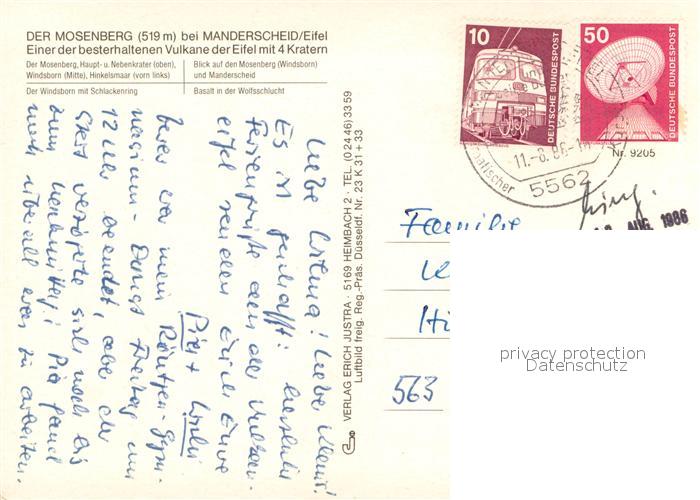 DER MOSENBERG (519 m) bei MANDERSCHEID/Eifel
Einer der besterhaltenen Vulkane der Eifel mit 4 Kratern
Der Mosenberg, Haupt- u. Nebenkrater (oben),
Windsborn (Mitte), Hinkelsmaar (vorn links)
Blick auf den Mosenberg (Windsborn)
und Manderscheid
Der Windsborn mit Schlackenring
Basalt in der Wolfsschlucht
10
DEUTSCHE BUNDESPOST
50
DEUTSCHE BUNDESPOST
Nr. 9205
-11.-8.86-1
5562
AUG. 1986
Liebe ! Liebe
Es ist geschafft! herzliche
Feriengrüße aus der Vulkan-
eifel senden Euch Eure
Pia +
war mein Röntgen-
Dienst Freitag um
12 Uhr beendet, aber der
Start verzögerte sich noch bis
zum Pia fand
noch überall etwas zu arbeiten.
VERLAG ERICH JUSTRA · 5169 HEIMBACH 2 · TEL. (0 24 46) 33 59
Luftbild freig. Reg.-Präs. Düsseldf. Nr. 23 K 31 + 33
Familie
Hi
563
privacy protection
Datenschutz